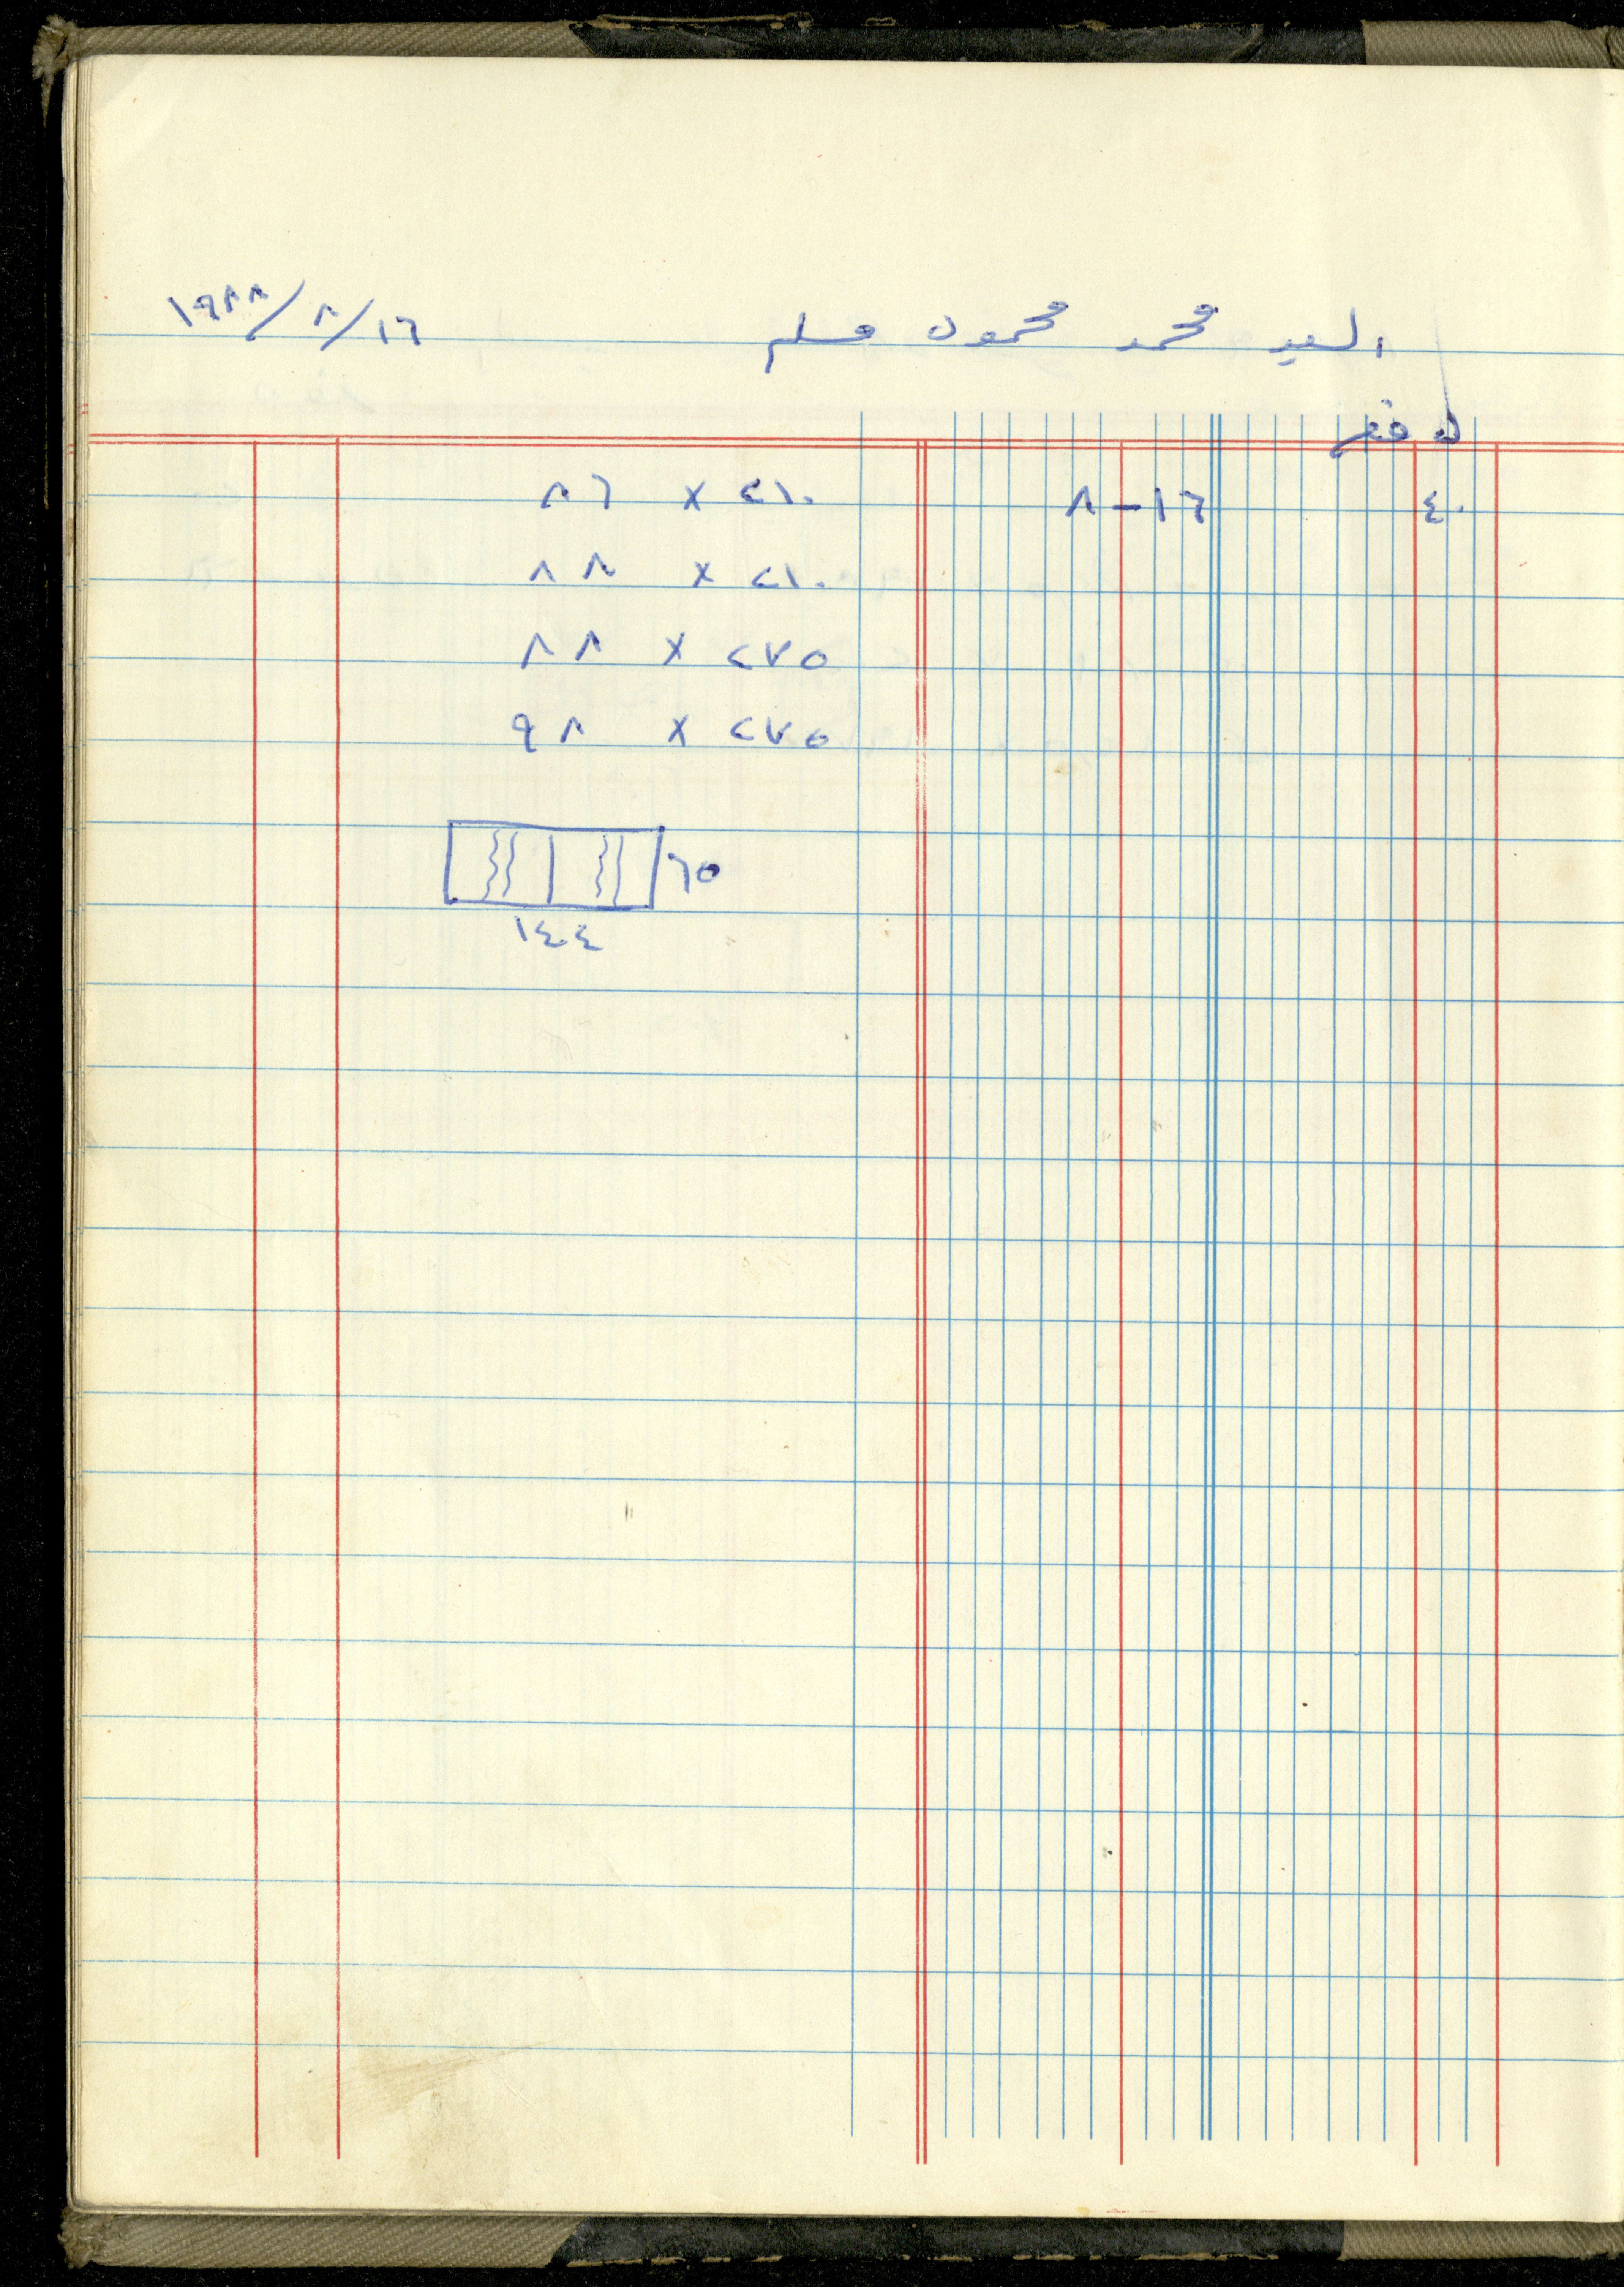 السيد محمد محمود مسلم ١٦/٨/١٩٨٨
دفع
٤٠ ١٦-٨ ٢١٠ × ٨٦
٢١٠ × ٨٨
٢٧٥ × ٨٨
٢٧٥ × ٩٨
٦٥
١٤٤